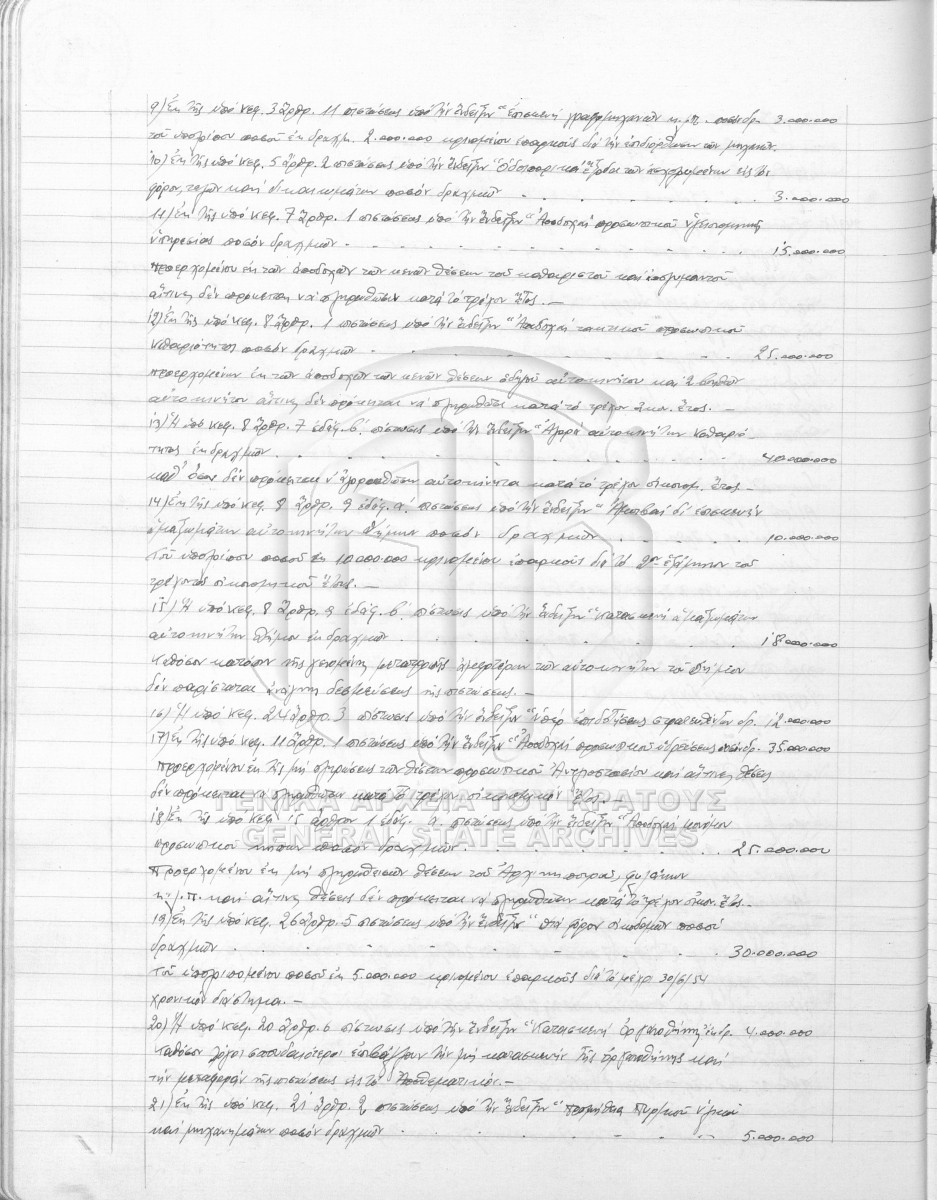 9) Ἐκ τῆς ὑπό κεφ. 3 ἄρθρ. 11 πιστώσεως ὑπό τήν ἔνδειξιν "ἐπισκευή γραφομηχανῶν κ.λ.π. ποσόν δρ. 3.000.000
τοῦ ὑπολοίπου ποσοῦ ἐκ δραχμ. 2.000.000 κρινομένου ἐπαρκοῦς διά τήν ἐπιδιόρθωσιν τῶν μηχανῶν.
10) Ἐκ τῆς ὑπό κεφ. 5 ἄρθρ. 2 πιστώσεως ὑπό τήν ἔνδειξιν "Ὁδοιπορικά ἔξοδα τῶν εἰσπραττομένων εἰς τόν
φόρον, τελῶν καί δικαιωμάτων ποσόν δραχμῶν . . . . 3.000.000
11) Ἐκ τῆς ὑπό κεφ. 7 ἄρθρ. 1 πιστώσεως ὑπό τήν ἔνδειξιν "Ἀποδοχαί προσωπικοῦ ὑγειονομικῆς
ὑπηρεσίας ποσόν δραχμῶν . . . . 15.000.000
προερχομένου ἐκ τῶν ἀποδοχῶν τῶν κενῶν θέσεων τοῦ καθαριστοῦ καί
αἵτινες δέν πρόκειται νά πληρωθῶσιν κατά τό τρέχον ἔτος. —
12) Ἐκ τῆς ὑπό κεφ. 8 ἄρθρ. 1 πιστώσεως ὑπό τήν ἔνδειξιν "Ἀποδοχαί τακτικοῦ προσωπικοῦ
καθαριότητος ποσόν δραχμῶν . . . . 25.000.000
προερχομένων ἐκ τῶν ἀποδοχῶν τῶν κενῶν θέσεων ὁδηγοῦ αὐτοκινήτου καί 2 βοηθῶν
αὐτοκινήτου αἵτινες δέν πρόκειται νά πληρωθῶσι κατά τό τρέχον οἰκ. ἔτος. —
13) Ἡ ὑπό κεφ. 8 ἄρθρ. 7 ἐδάφ. β. πίστωσις ὑπό τήν ἔνδειξιν "Ἀγορά αὐτοκινήτων καθαριό-
τητος ἐκ δραχμῶν . . . . 40.000.000
καθ' ὅσον δέν πρόκειται ν' ἀγορασθῶσιν αὐτοκίνητα κατά τό τρέχον οἰκονομ. ἔτος —
14) Ἐκ τῆς ὑπό κεφ. 8 ἄρθρ. 9 ἐδάφ. α. πιστώσεως ὑπό τήν ἔνδειξιν "Ἀμοιβαί δι' ἐπισκευήν
ἁμαξωμάτων αὐτοκινήτων Δήμου ποσόν δραχμῶν . . . . 10.000.000
τοῦ ὑπολοίπου ποσοῦ ἐκ 10.000.000 κρινομένου ἐπαρκοῦς διά τό 2ον ἑξάμηνον τοῦ
τρέχοντος οἰκονομικοῦ ἔτους. —
15) Ἡ ὑπό κεφ. 8 ἄρθρ. 9 ἐδάφ. β. πίστωσις ὑπό τήν ἔνδειξιν "κατασκευή ἁμαξωμάτων
αὐτοκινήτων Δήμου ἐκ δραχμῶν . . . . 18.000.000
καθόσον κατόπιν τῆς γενομένης μετατροπῆς ἀμφοτέρων τῶν αὐτοκινήτων τοῦ Δήμου
δέν παρίσταται ἀνάγκη δεσμεύσεως τῆς πιστώσεως. —
16) Ἡ ὑπό κεφ. 24 ἄρθρ. 3 πίστωσις ὑπό τήν ἔνδειξιν "ὑπέρ ἐπιδοτήσεως στρατευθέντων δρ. 12.000.000
17) Ἐκ τῆς ὑπό κεφ. 11 ἄρθρ. 1 πιστώσεως ὑπό τήν ἔνδειξιν "Ἀποδοχαί προσωπικοῦ ὑδρεύσεως ποσόν δρ. 35.000.000
προερχομένου ἐκ τῆς μή πληρώσεως τῶν θέσεων προσωπικοῦ Ἀντλιοστασίου καί αἵτινες θέσεις
δέν πρόκειται νά πληρωθῶσιν κατά τό τρέχον οἰκονομικόν ἔτος. —
18) Ἐκ τῆς ὑπό κεφ. 15 ἄρθρου 1 ἐδάφ. α. πιστώσεως ὑπό τήν ἔνδειξιν "Ἀποδοχαί μονίμου
προσωπικοῦ κήπων ποσόν δραχμῶν . . . . 25.000.000
προερχομένου ἐκ μή πληρωθεισῶν θέσεων τοῦ Ἀρχικηπουροῦ, φυλάκων
κ.λ.π. καί αἵτινες θέσεις δέν πρόκειται νά πληρωθῶσιν κατά τό τρέχον οἰκον. ἔτος. —
19) Ἐκ τῆς ὑπό κεφ. 26 ἄρθρ. 5 πιστώσεως ὑπό τήν ἔνδειξιν "διά φόρον οἰκοδομῶν ποσόν
δραχμῶν . . . . 30.000.000
τοῦ ὑπολειπομένου ποσοῦ ἐκ 5.000.000 κρινομένου ἐπαρκοῦς διά τό μέχρι 30/6/54
χρονικόν διάστημα. —
20) Ἡ ὑπό κεφ. 20 ἄρθρ. 6 πίστωσις ὑπό τήν ἔνδειξιν "Κατασκευή ἐκ δρ. 4.000.000
καθόσον λόγοι σπουδαιότεροι ἐπιβάλλουν τήν μή κατασκευήν τῆς καί
τήν μεταφοράν τῆς πιστώσεως εἰς τό Ἀποθεματικόν. —
21) Ἐκ τῆς ὑπό κεφ. 21 ἄρθρ. 2 πιστώσεως ὑπό τήν ἔνδειξιν "προμήθεια
καί μηχανημάτων ποσόν δραχμῶν . . . . 5.000.000
ΓΕΝΙΚΑ ΑΡΧΕΙΑ ΤΟΥ ΚΡΑΤΟΥΣ
GENERAL STATE ARCHIVES